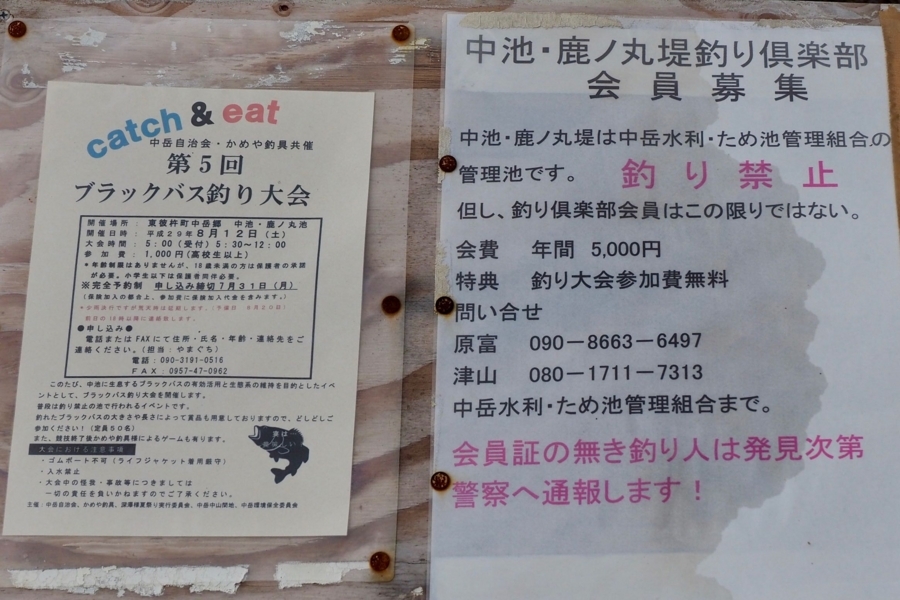 catch & eat
中岳自治会・かめや釣具共催
第5回
ブラックバス釣り大会
開催場所：東彼杵町中岳郷 中池・鹿ノ丸池
開催日時：平成29年8月12日（土）
大会時間：5:00（受付）5:30～12:00
参加費：1,000円（高校生以上）
＊年齢制限はありませんが、18歳未満の方は保護者の承諾
が必要。小学生以下は保護者同伴必要。
※完全予約制 申し込み締切7月31日（月）
（保険加入の都合上、参加費に保険加入代金を含みます。）
●申し込み●
電話またはFAXにて住所・氏名・年齢・連絡先をご
連絡ください。（担当：やまぐち）
電話：090-3191-0516
FAX：0957-47-0962
このたび、中池に生息するブラックバスの有効活用と生態系の維持を目的としたイベ
ントとして、ブラックバス釣り大会を開催します。
普段は釣り禁止の池で行われるイベントです。
釣れたブラックバスの大きさや長さによって賞品も用意しておりますので、どしどしご
参加ください！（定員50名）
また、競技終了後かめや釣具様によるゲームも有ります。
大会における注意事項
・ゴムボート不可（ライフジャケット着用厳守）
・入水禁止
・大会中の怪我・事故等につきましては
一切の責任を負いかねますのでご了承ください。
実は
美味しい
中池・鹿ノ丸堤釣り倶楽部
会員募集
中池・鹿ノ丸堤は中岳水利・ため池管理組合の
管理池です。 釣り禁止
但し、釣り倶楽部会員はこの限りではない。
会費 年間 5,000円
特典 釣り大会参加費無料
問い合せ
原富 090－8663－6497
津山 080－1711－7313
中岳水利・ため池管理組合まで。
会員証の無き釣り人は発見次第
警察へ通報します！